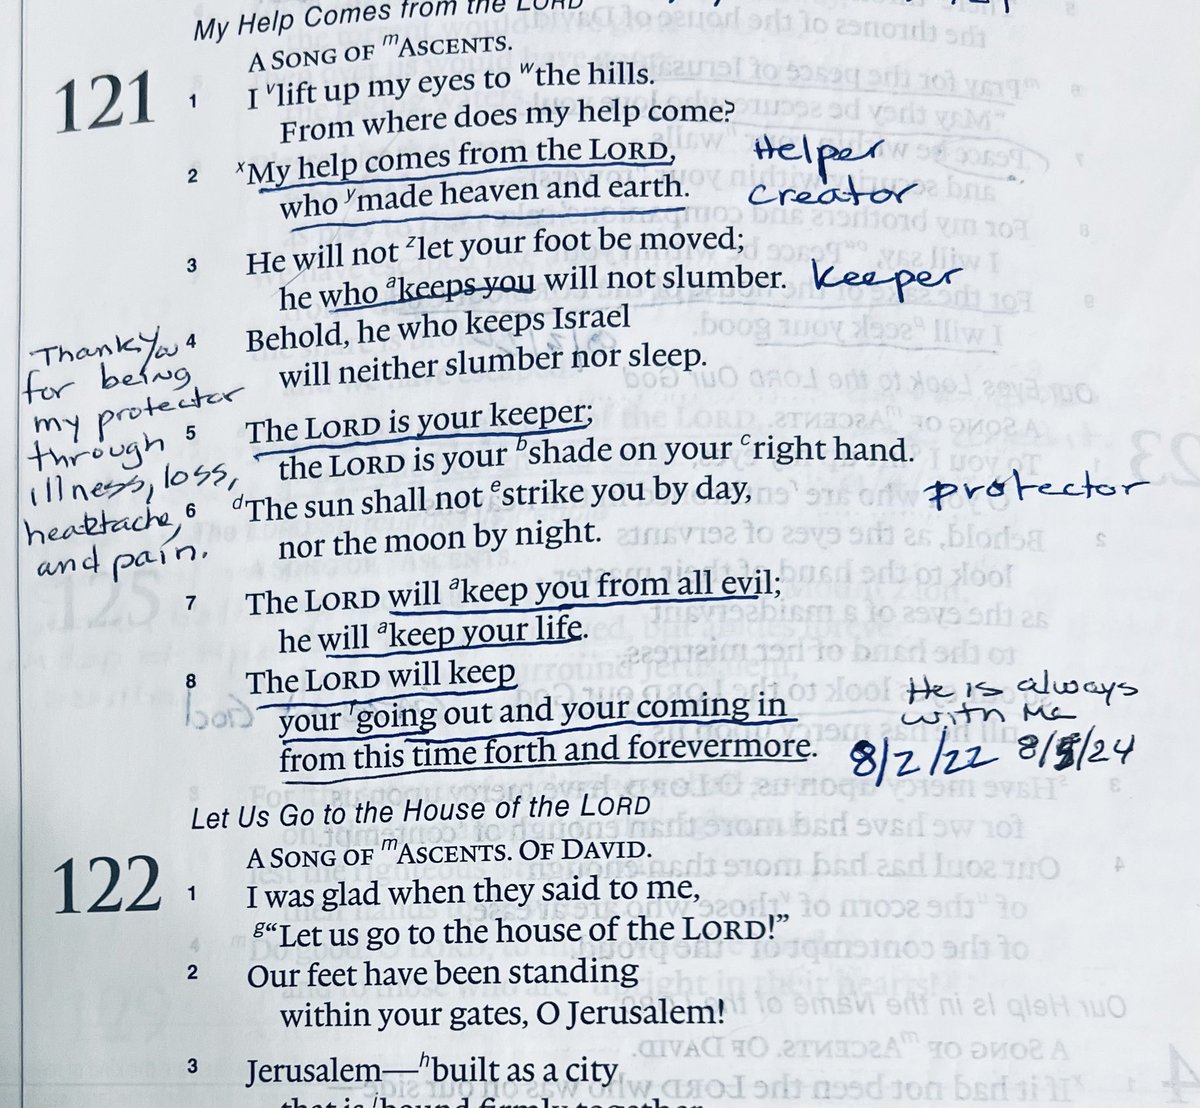 My Help Comes from the LORD
121
A SONG OF mASCENTS.
1 I vlift up my eyes to wthe hills.
From where does my help come?
2 xMy help comes from the LORD,
who ymade heaven and earth.
Helper
Creator
3 He will not zlet your foot be moved;
he who akeeps you will not slumber.
Keeper
4 Behold, he who keeps Israel
will neither slumber nor sleep.
Thank You
for being
my protector
through
illness, loss,
heartache,
and pain.
5 The LORD is your keeper;
the LORD is your bshade on your cright hand.
6 dThe sun shall not estrike you by day,
nor the moon by night.
protector
7 The LORD will akeep you from all evil;
he will akeep your life.
8 The LORD will keep
your fgoing out and your coming in
from this time forth and forevermore.
He is always
with me
8/2/22 8/5/24
Let Us Go to the House of the LORD
122
A SONG OF mASCENTS. OF DAVID.
1 I was glad when they said to me,
g“Let us go to the house of the LORD!”
2 Our feet have been standing
within your gates, O Jerusalem!
3 Jerusalem—hbuilt as a city
that is ibound firmly together,